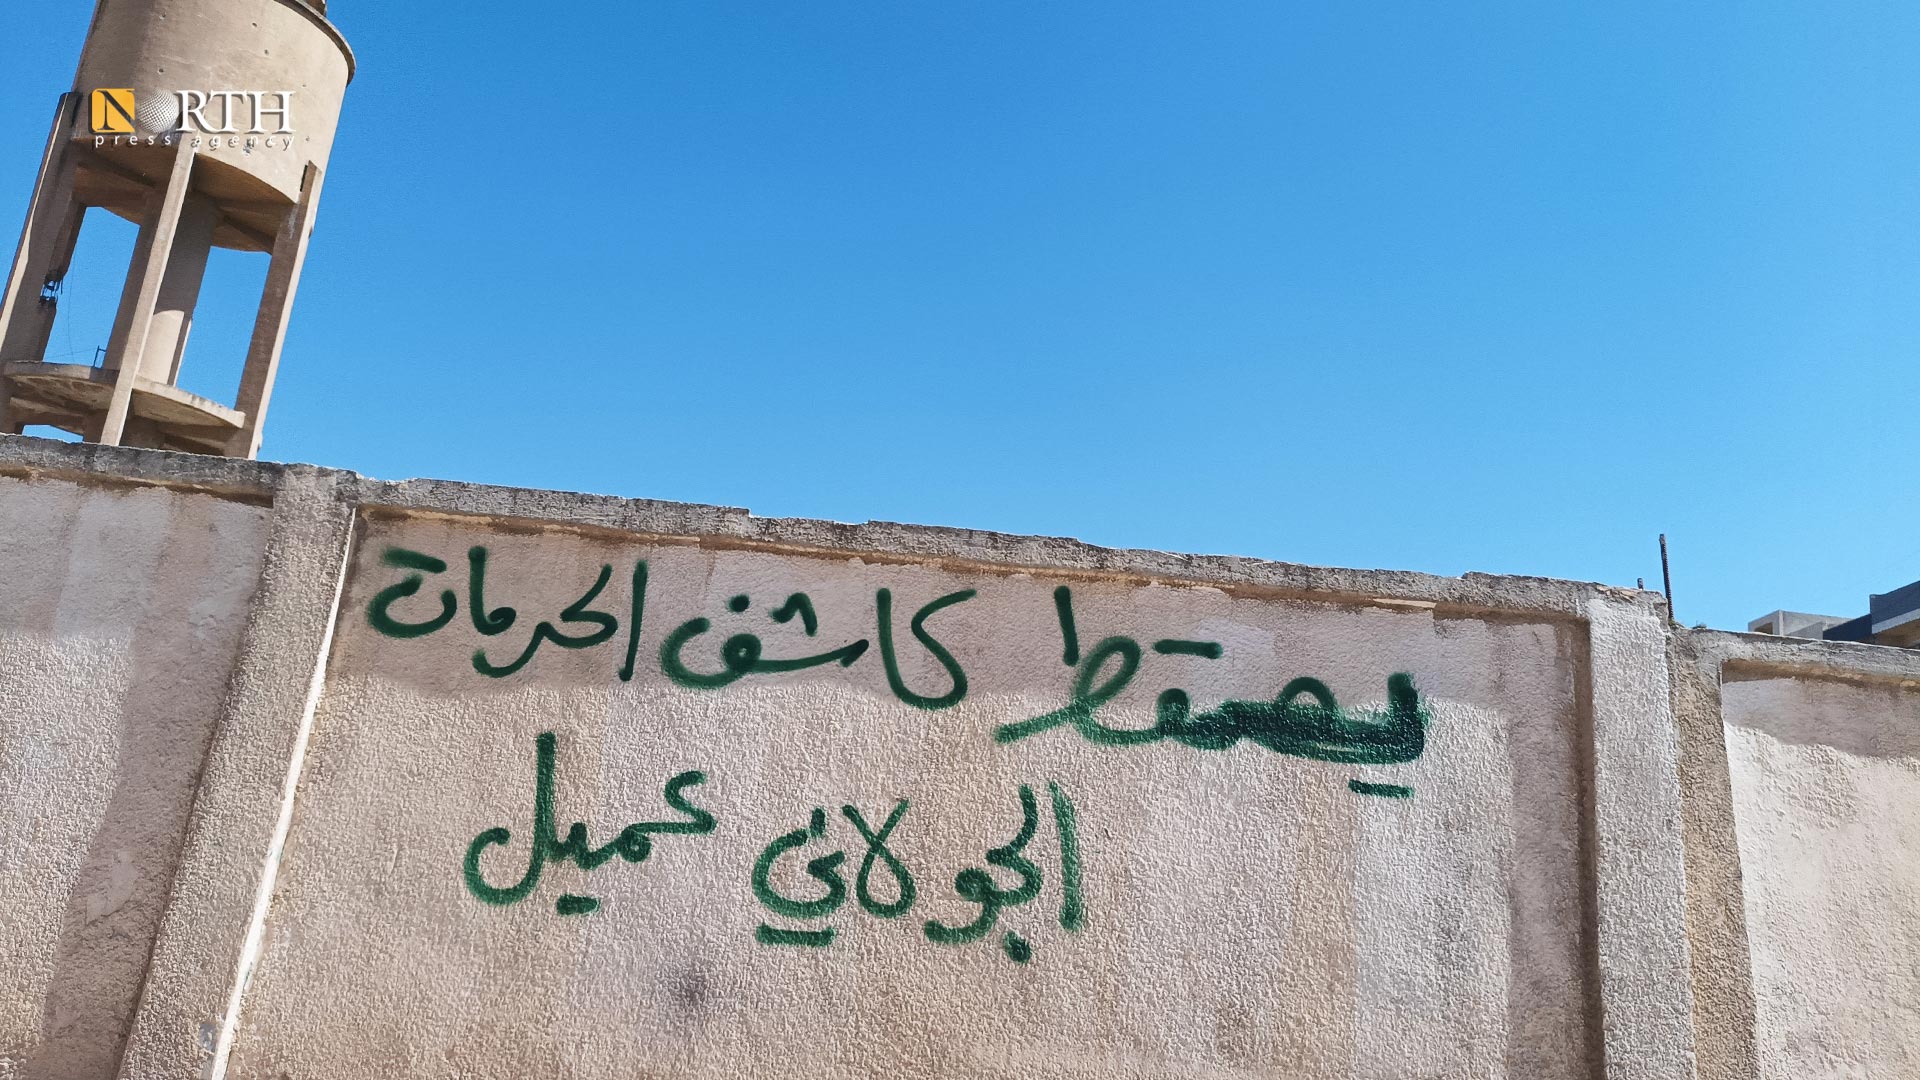 NORTH
press agency
يصقط كاشف الحرمات
الجولاني عميل